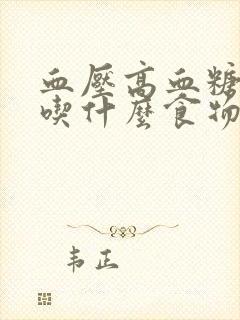 血壓高血糖
喫什麼食物
韦正